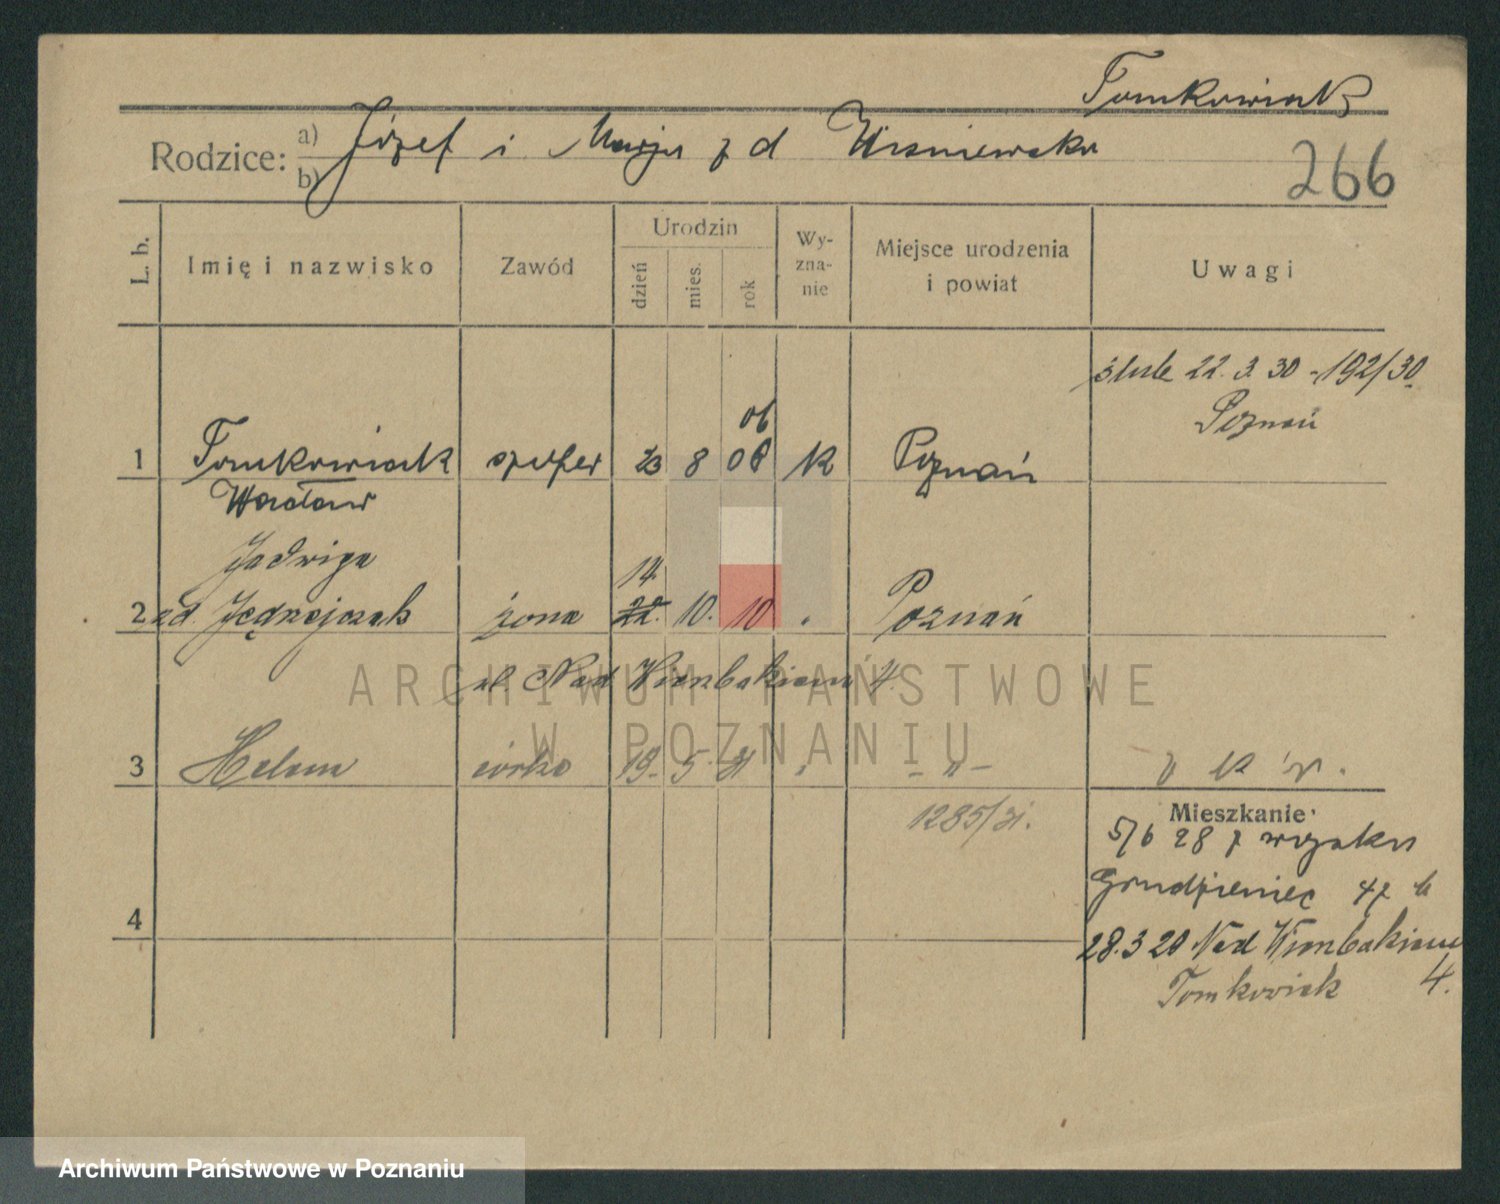 Tomkowiak
Rodzice: a) Józef i Marja z d Wiśniewska
b)
266
L. b.
Imię i nazwisko
Zawód
Urodzin
dzień
mies.
rok
Wy-
zna-
nie
Miejsce urodzenia
i powiat
Uwagi
ślub 22. 3. 30 - 192/30
Poznań
06
1 Tomkowiak szofer 23 8 08 K Poznań
Wacław
Jadwiga
14
2 zd. Jędrzejczak żona 22. 10. 10 " Poznań
ul. Nad Wierzbakiem 4.
3 Helena córka 19. 5. 31 " - " -
1285/31.
Mieszkanie:
5/6 28 z wojska
Grudzieniec
4
28.3 Nad Wierzbakiem
4.
Tomkowiak
ARCHIWUM PAŃSTWOWE
W POZNANIU
Archiwum Państwowe w Poznaniu